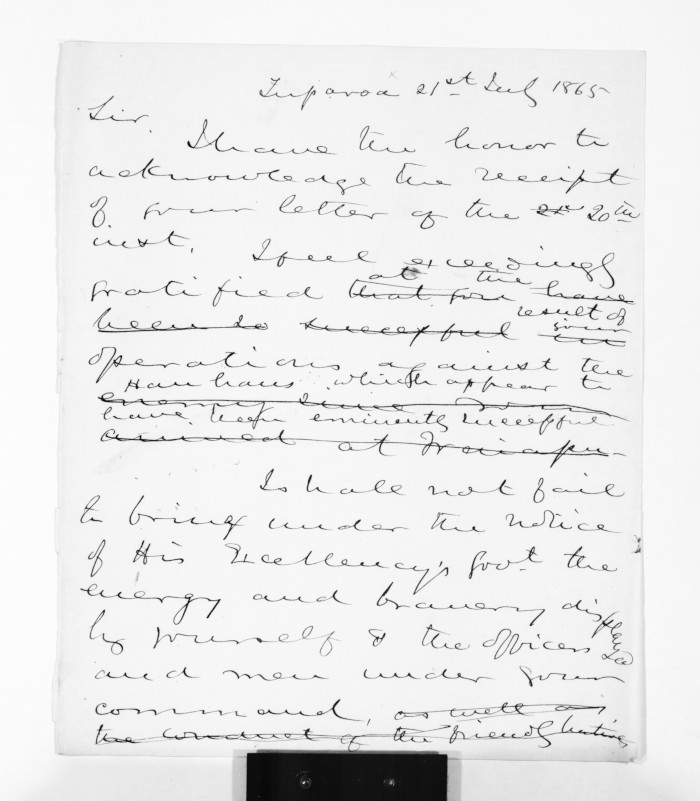 Tuparoa 21st July 1865
Sir.
I have the honor to
acknowledge the receipt
of your letter of the 21st 20th
inst. I feel exceedingly
at the
gratified that you have
result of
been so successful in your
operations against the
Hau haus which appear to
enemy since your
have been eminently successful
at Waiapu
I shall not fail
to bring under the notice
of His Excellency's Govt. the
energy and bravery displayed
by yourself & the officers
and men under your
command, as well as
the conduct of the friendly natives